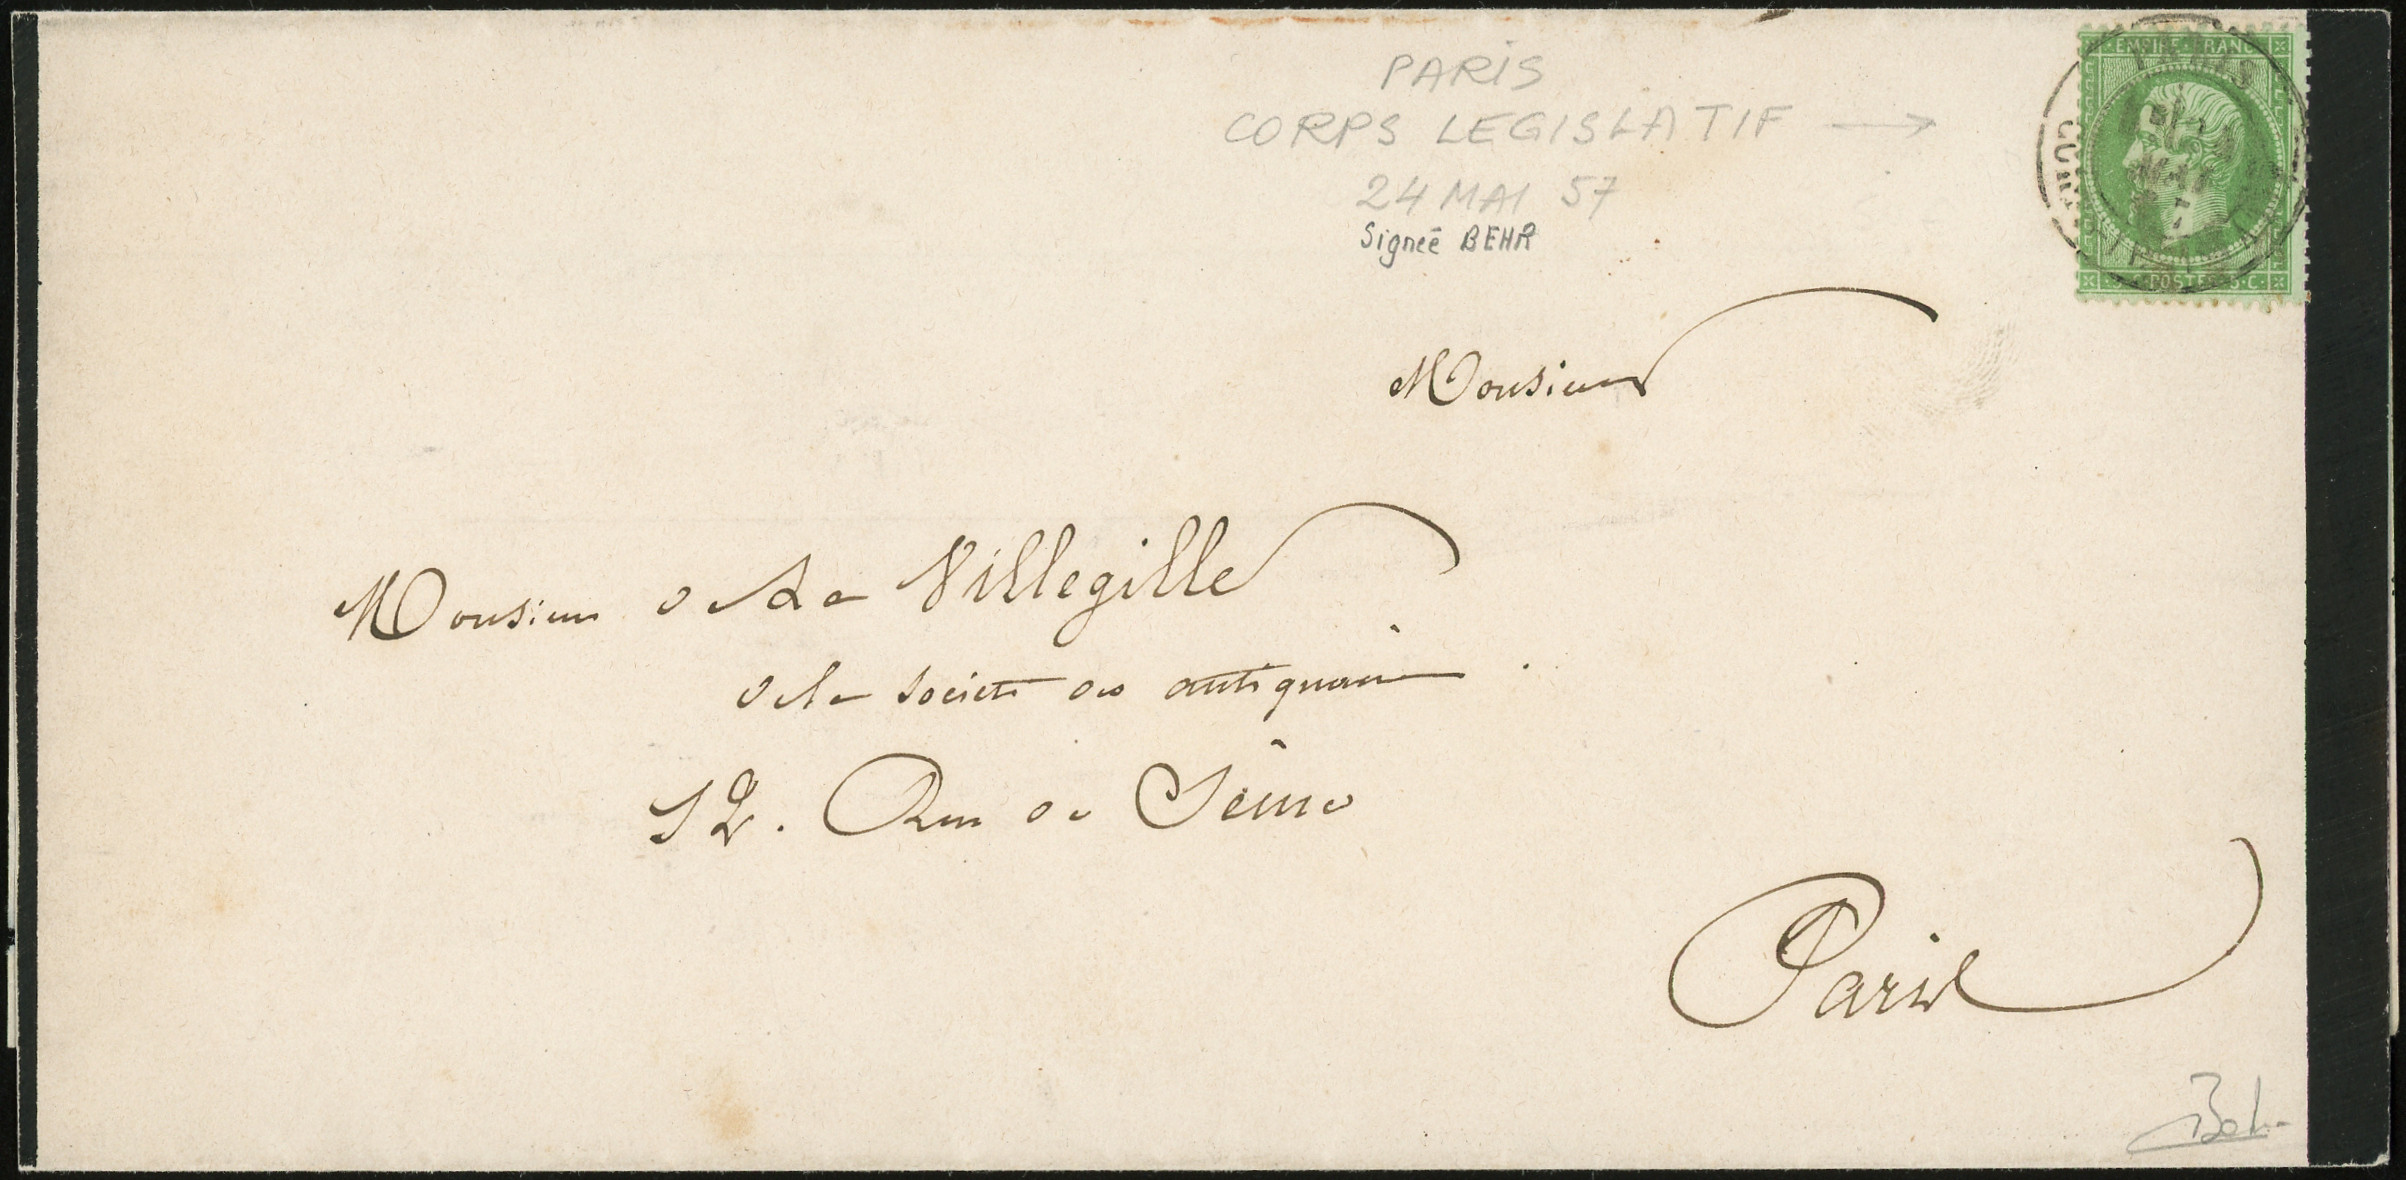 PARIS
CORPS LEGISLATIF →
24 MAI 57
Signeé BEHR
EMPIRE FRANC
PARIS
MAI
POSTES 5 C
Monsieur
Monsieur de La Villegille
de la société des antiquaires
12. Rue de Seine
Paris
Behr